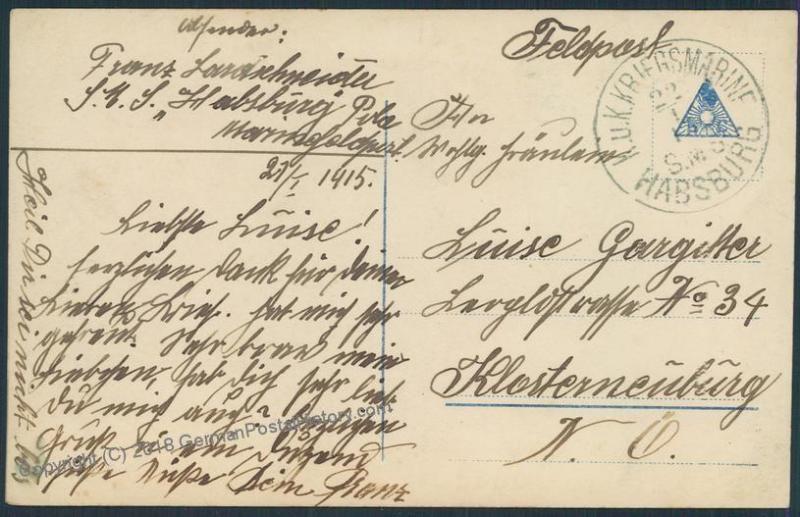 Absender:
Franz
S.M.S. „Habsburg" Pola
Marinefeldpost
21/I 1915.
Liebste Luise!
Herzlichen Dank für Deinen
lieben Brief. hat mich sehr
gefreut. Sehr brav mein
Liebchen, hab Dich sehr lieb
Du mich auch?
Gruß
süße Küße Dein Franz
Heil Du sei nicht bös
Feldpost
K.U.K. KRIEGSMARINE
22/I
S.M.S.
HABSBURG
An
Wohlg. Fräulein
Luise
No 34
Klosterneuburg
N. Ö.
Copyright (C) 2018 GermanPostalHistory.com